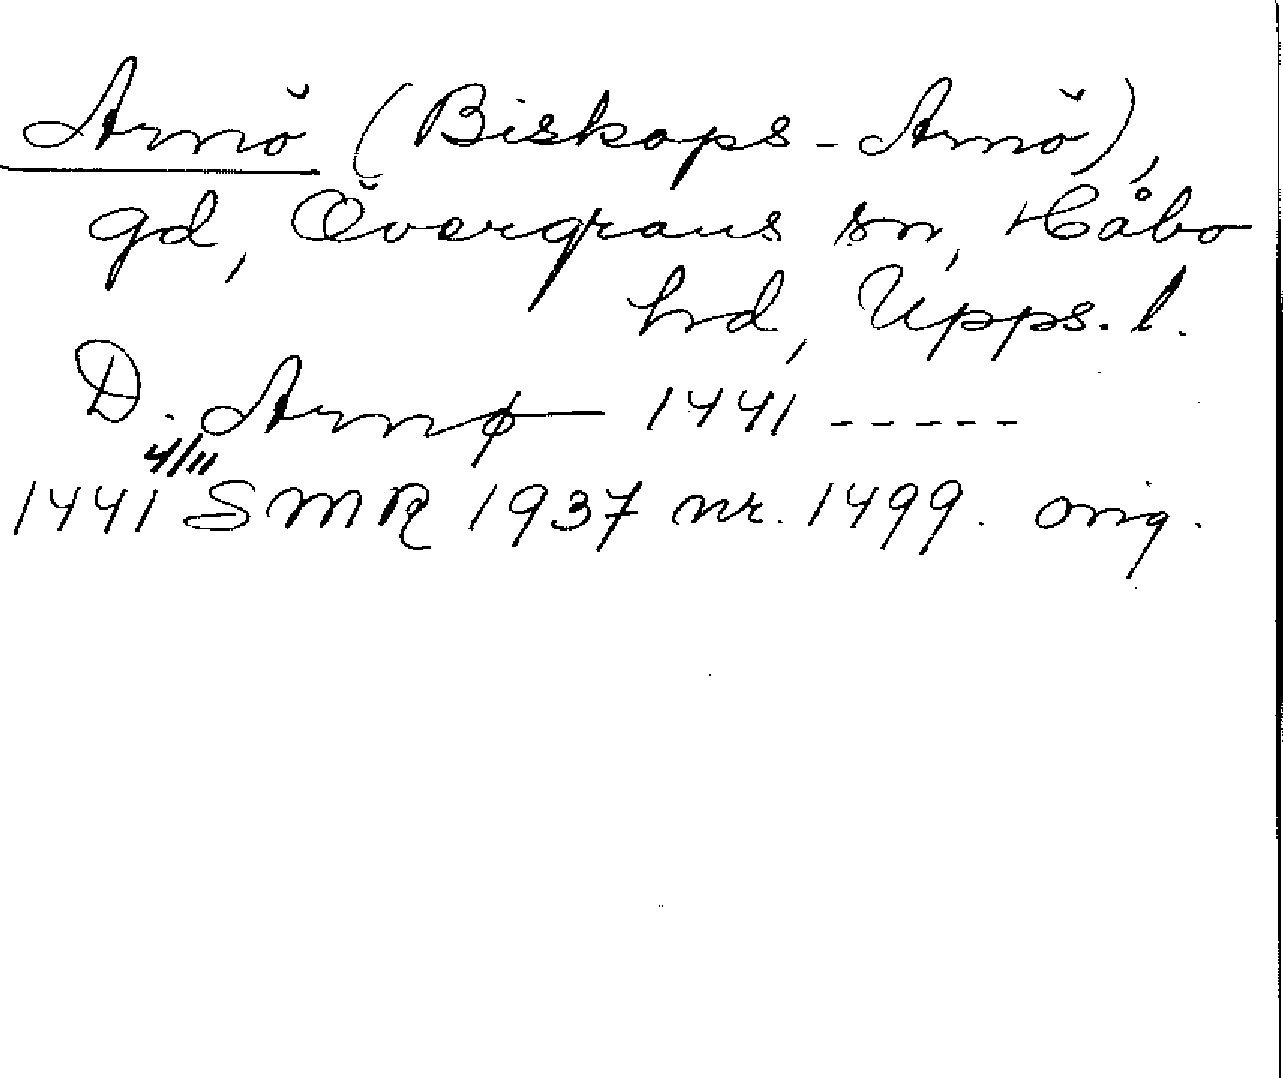 Arnö (Biskops-Arnö),
gd, Övergrans sn, Håbo
hrd, Upps. l.
D. Arnø — 1441 -----
4/11
1441 SMR 1937 nr. 1499. orig.